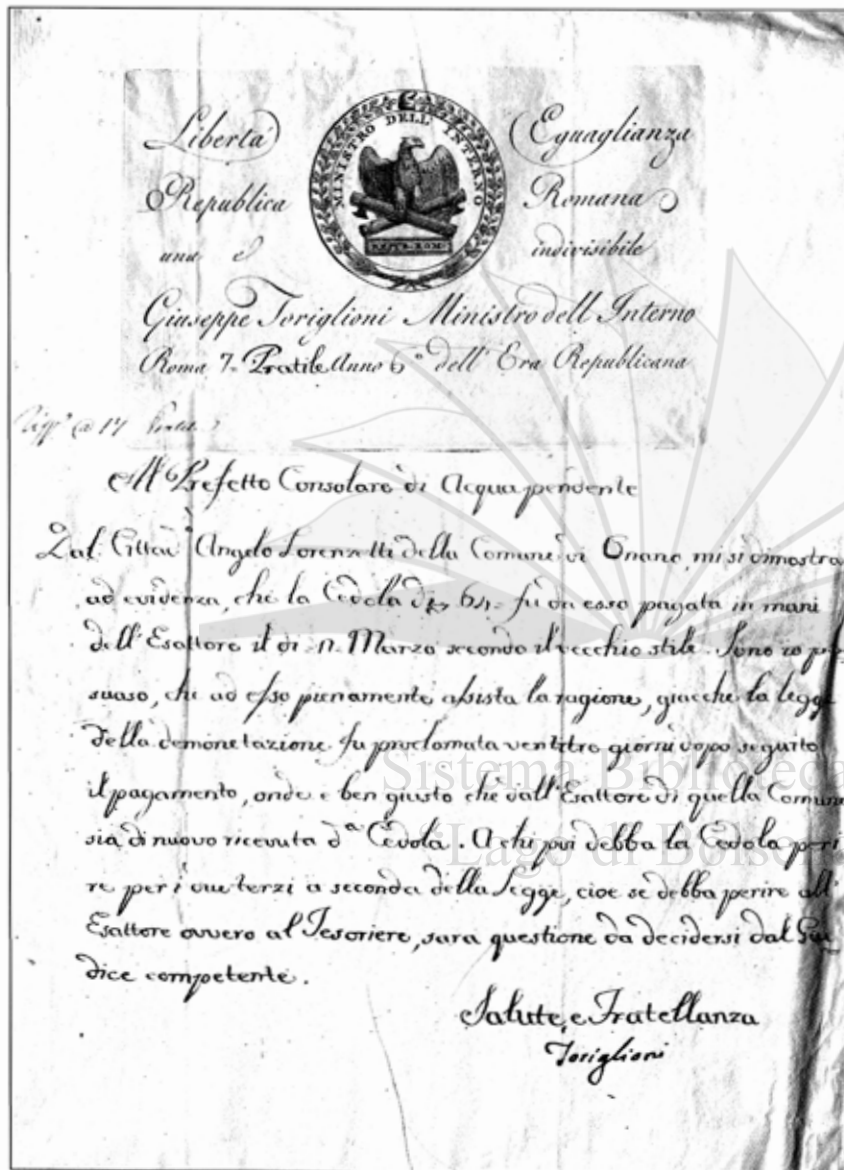 Libertà Eguaglianza
MINISTRO DELL' INTERNO
Republica Romana
REPUB. ROM.
una è indivisibile
Giuseppe Toriglioni Ministro dell' Interno
Roma 7. Pratile Anno 6.º dell' Era Republicana
17
All Prefetto Consolare di Acquapendente
Dal Cittadº Angelo Lorenzetti della Comune di Onano, mi si dimostra
ad evidenza, che la Cedola di 64 fù da esso pagata in mani
dell' Esattore il dì Marzo secondo il vecchio stile. Sono io per
suaso, che ad esso pienamente assista la ragione, giacche la legge
della demonetazione fu proclamata ventitro giorni dopo seguito
il pagamento, onde e ben giusto che dall' Esattore di quella Comune
sia di nuovo ricevuta dª Cedola. A chi poi debba la Cedola peri
re per i due terzi a seconda della Legge, cioe se debba perire all'
Esattore ovvero al Tesoriere, sara questione da decidersi dal Giu
dice competente.
Salute, e Fratellanza
Toriglioni
Sistema Biblioteca
Lago di Bolsen